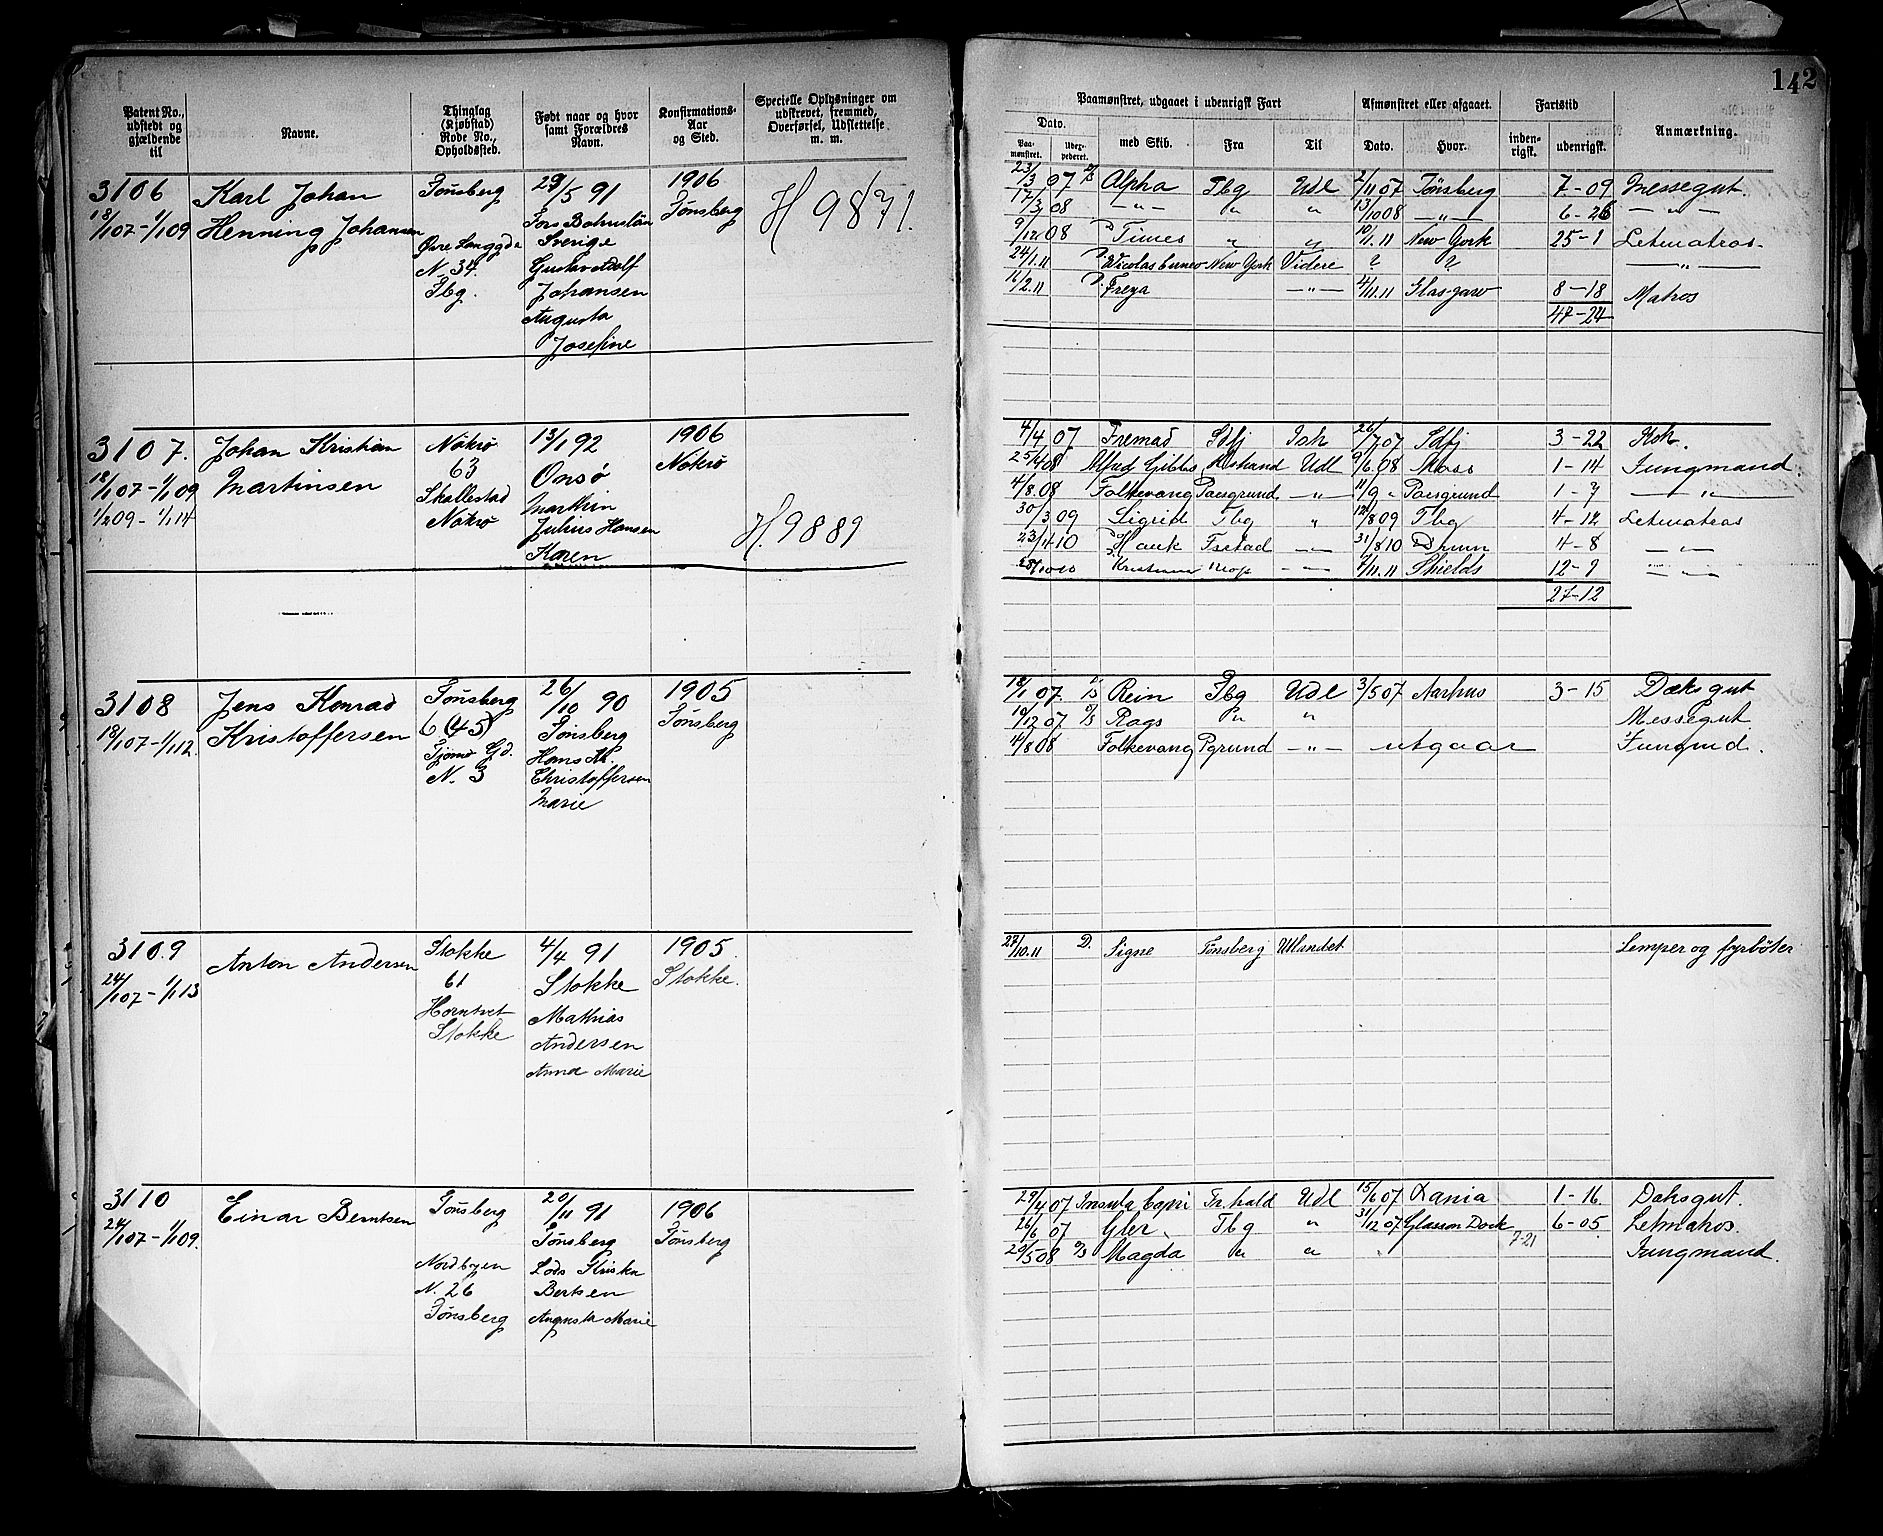 142
Patent No., udstedt og gjældende til
Navne.
Thinglag (Kjøbstad) Rode No., Opholdssted.
Født naar og hvor samt Forældres Navn.
Konfirmations-Aar og Sted.
Specielle Oplysninger om udskrevet, fremmed, Overførsel, Udslettelse m. m.
Paamønstret, udgaaet i udenrigsk Fart
Afmønstret eller afgaaet.
Fartstid
Anmærkning.
Dato.
Paamønstret.
med Skib.
Fra
Til
Dato.
Hvor.
indenrigsk.
udenrigsk.
3106
18/1 07 - 1/1 09
Karl Johan
Henning Johansen
Tønsberg
Øvre Langgde
N. 34.
Tbg.
29/5 91
Fors Bohuslän
Sverige
Gustav Adolf
Johansen
Augusta
Josefine
1906
Tønsberg
H 9871.
23/3 07 Alpha Tbg Udl 2/11 07 Tønsberg 7-09 Messegut.
17/3 08 -"- " " 13/10 08 -"- 6-26 -"-
9/12 08 D Times " " 10/1 11 New York 25-1 Letmatros
24/1 11 D Nicolas Cuneo New York Videre ? ? -"-
16/2 11 D. Freya -"- 4/11 11 Glasgow 8-18 Matros
47-24
3107.
18/1 07 - 1/1 09
1/2 09 - 1/1 14
Johan Kristian
Martinsen
Nøtrø
63
Skallestad
Nøtrø
13/1 92
Onsø
Martin
Julius Hansen
Karen
1906
Nøtrø
H. 9889
4/4 07 Fremad Sdfj Ish 26/7 07 Sdfj 3-22 Kok.
25/4 08 Alfred Gibbs Krshand Udl 9/6 08 Moss 1-14 Jungmand
4/8 08 Folkevang Porsgrund -"- 11/9 " Porsgrund 1-7 -"-
30/3 09 Sigrid Tbg " 12/8 09 Tbg 4-12 Letmatros
23/4 10 Hauk Frstad -"- 31/8 10 Drmn 4-8 -"-
-"- 7/11 11 Shields 12-9 -"-
27-12
3108
18/1 07 - 1/1 12.
Jens Konrad
Kristoffersen
Tønsberg
6 (45)
Tjømø Gd.
N. 3
26/10 90
Tønsberg
Hans M.
Christoffersen
Marie
1905
Tønsberg
18/1 07. Rein Tbg Udl 3/5 07 Aarhus 3-15 Dæksgut
10/12 07 Rags " " Messegut
4/8 08 Folkevang Pgrund -"- utgaar Jungmd.
3109
24/1 07 - 1/1 13
Anton Andersen
Stokke
61
Horntvet
Stokke
4/4 91
Stokke
Mathias
Andersen
Anna Marie
1905
Stokke.
27/10. 11 D. Signe Tønsberg Utlandet Lemper og fyrbøter
3110
24/1 07 - 1/1 09.
Einar Berntsen
Tønsberg
Nordbyen
N. 26
Tønsberg
20/11 91
Tønsberg
Lods Kristen
Bertsen
Augusta Marie
1906
Tønsberg
29/4 07 Insula Capri Fr.hald Udl 15/6 07 Xania 1-16 Dæksgut.
26/6 07 Gler. Tbg " 31/12 07 Glasson Dock 6-05 Letmatros.
7-21
29/5 08 Magda " " " Jungmand.